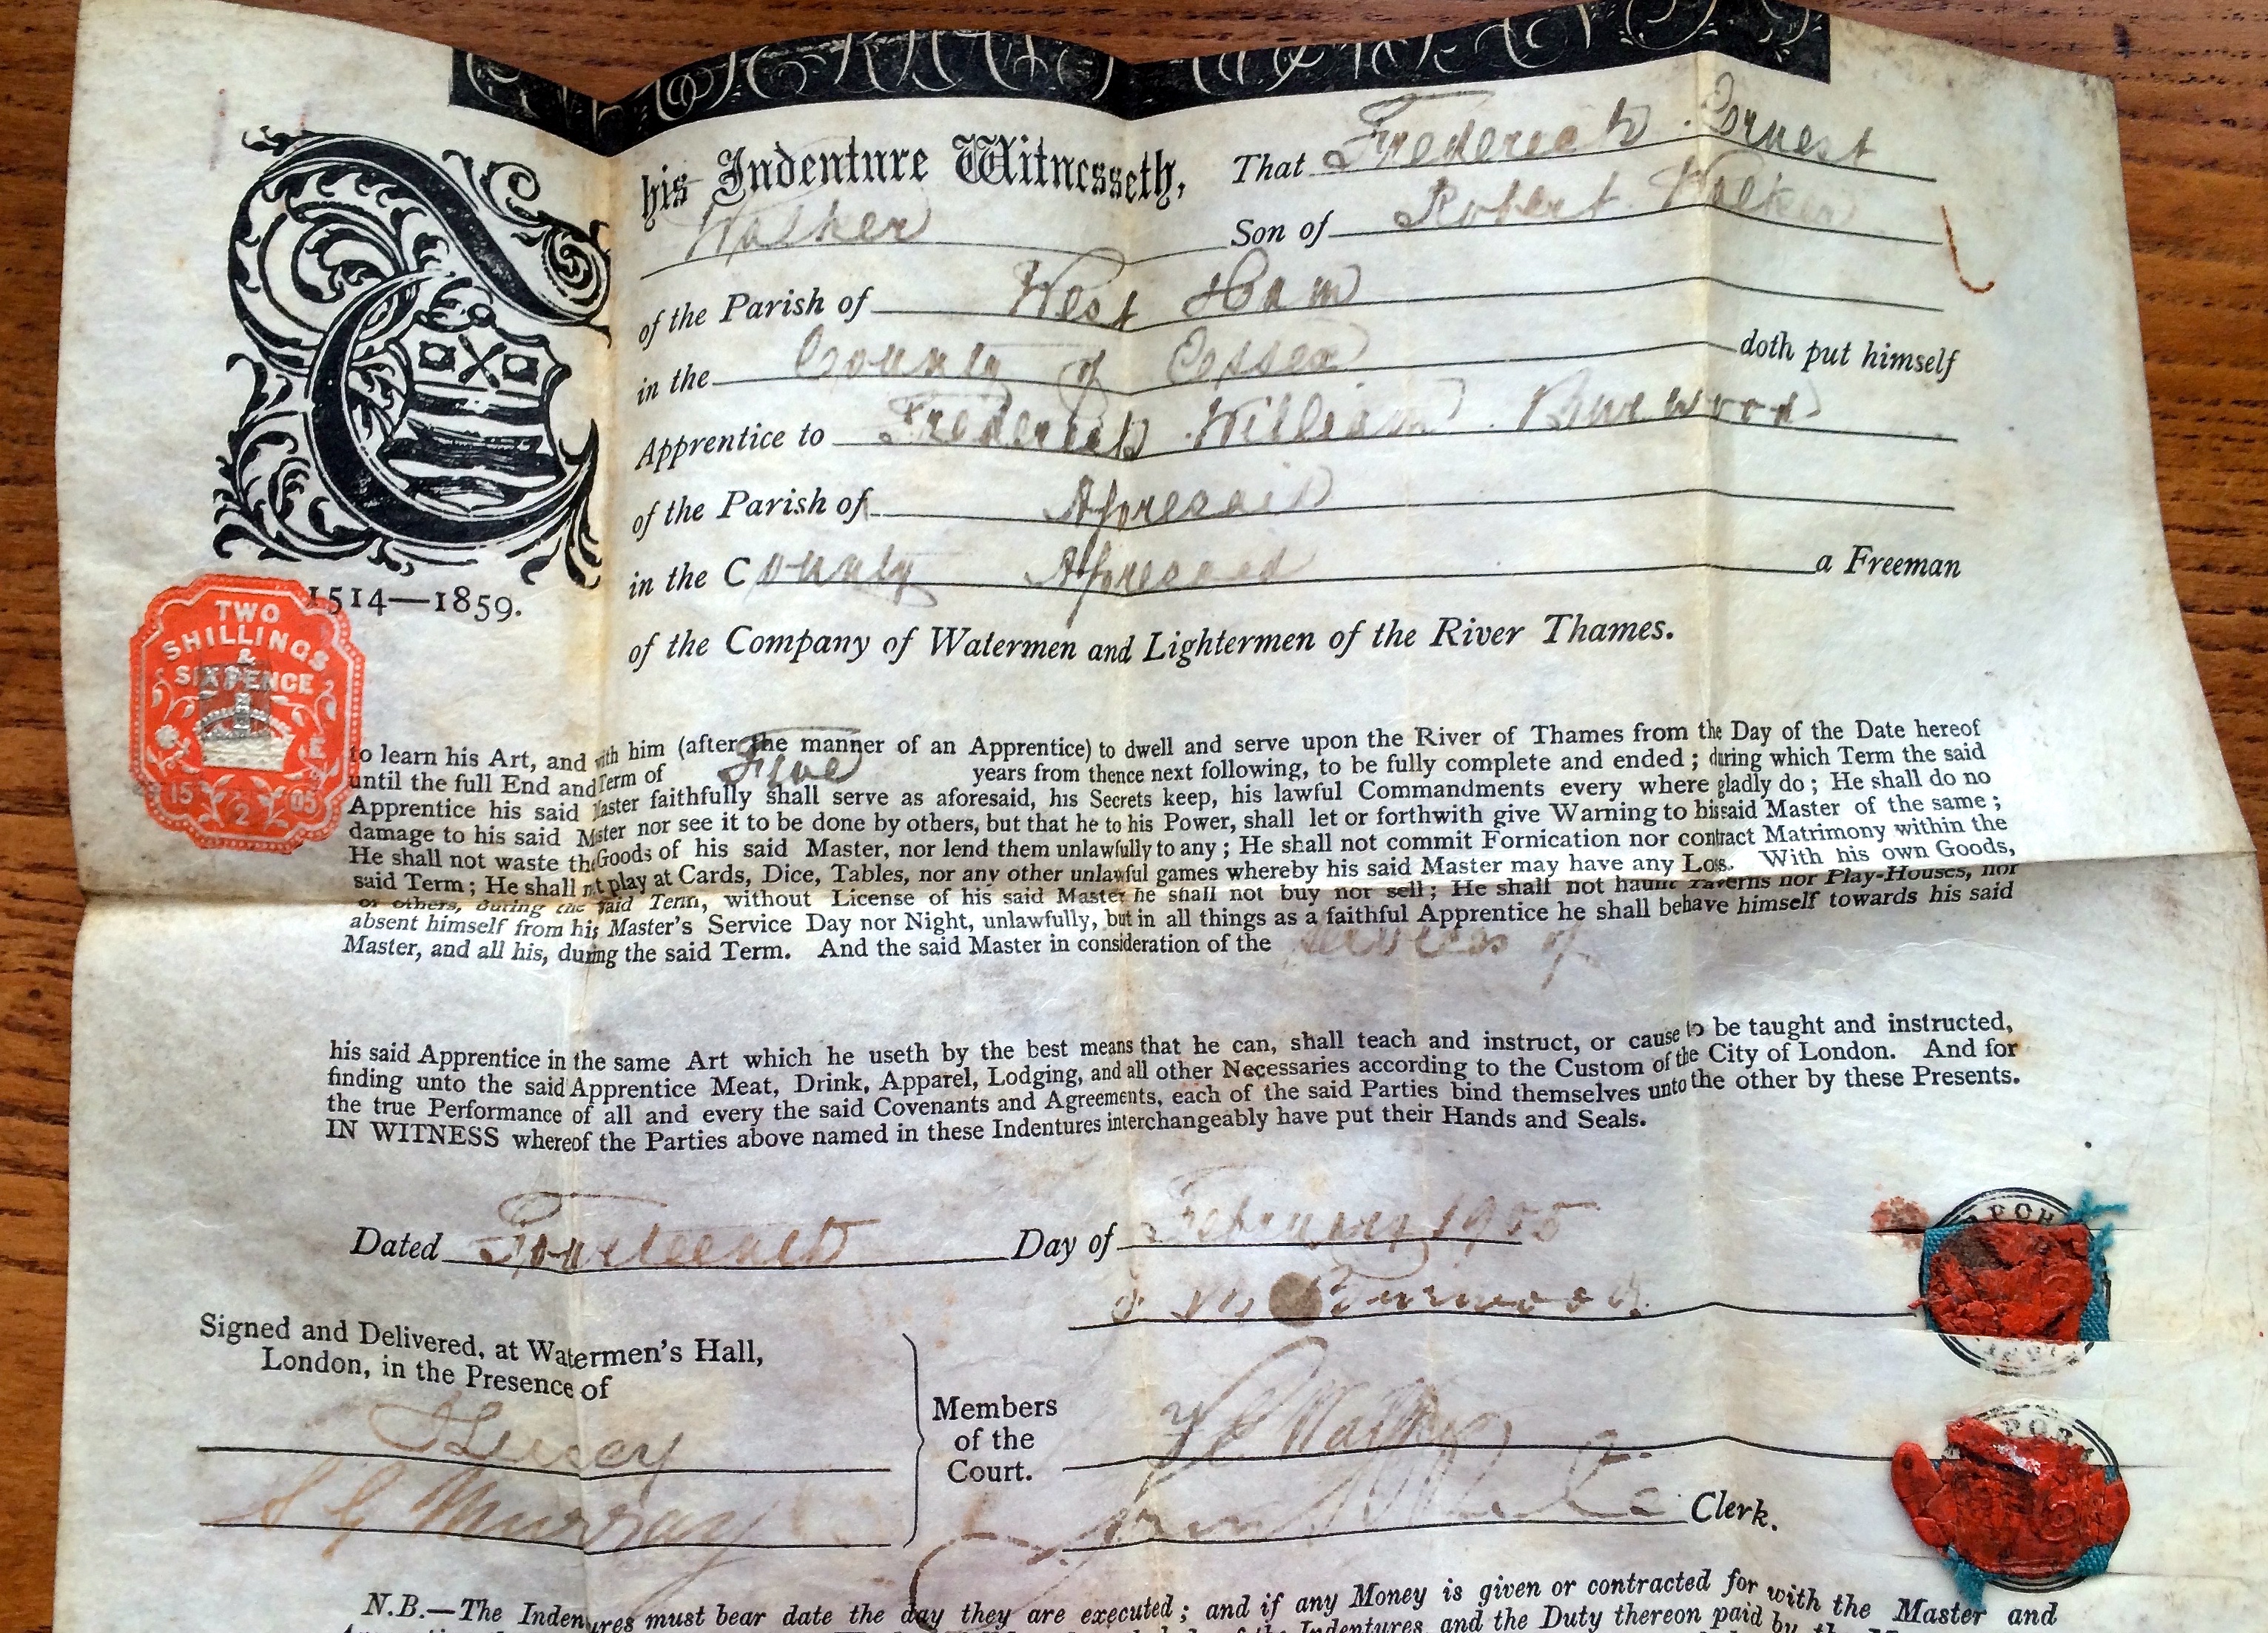 This Indenture Witnesseth, That Frederick Ernest
Walker Son of Robert Walker
of the Parish of West Ham
in the County of Essex doth put himself
Apprentice to Frederick William Burwood
of the Parish of Aforesaid
in the County Aforesaid a Freeman
1514—1859.
of the Company of Watermen and Lightermen of the River Thames.
TWO
SHILLINGS
&
SIXPENCE
15 2 05
to learn his Art, and with him (after the manner of an Apprentice) to dwell and serve upon the River of Thames from the Day of the Date hereof
until the full End and Term of Five years from thence next following, to be fully complete and ended; during which Term the said
Apprentice his said Master faithfully shall serve as aforesaid, his Secrets keep, his lawful Commandments every where gladly do; He shall do no
damage to his said Master nor see it to be done by others, but that he to his Power, shall let or forthwith give Warning to his said Master of the same;
He shall not waste the Goods of his said Master, nor lend them unlawfully to any; He shall not commit Fornication nor contract Matrimony within the
said Term; He shall not play at Cards, Dice, Tables, nor any other unlawful games whereby his said Master may have any Loss. With his own Goods,
or others, during the said Term, without License of his said Master he shall not buy nor sell; He shall not haunt Taverns nor Play-Houses, nor
absent himself from his Master's Service Day nor Night, unlawfully, but in all things as a faithful Apprentice he shall behave himself towards his said
Master, and all his, during the said Term. And the said Master in consideration of the services of
his said Apprentice in the same Art which he useth by the best means that he can, shall teach and instruct, or cause to be taught and instructed,
finding unto the said Apprentice Meat, Drink, Apparel, Lodging, and all other Necessaries according to the Custom of the City of London. And for
the true Performance of all and every the said Covenants and Agreements, each of the said Parties bind themselves unto the other by these Presents.
IN WITNESS whereof the Parties above named in these Indentures interchangeably have put their Hands and Seals.
Dated Fourteenth Day of February 1905
Burwood
Signed and Delivered, at Watermen's Hall,
London, in the Presence of
Members
of the
Court.
Murray
Clerk.
N.B.—The Indentures must bear date the day they are executed; and if any Money is given or contracted for with the Master and